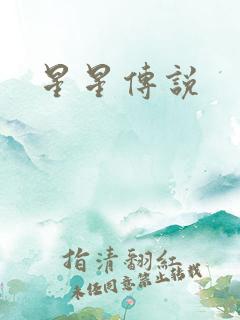 星星傳說
指清翻紅
未任同意禁止轉載